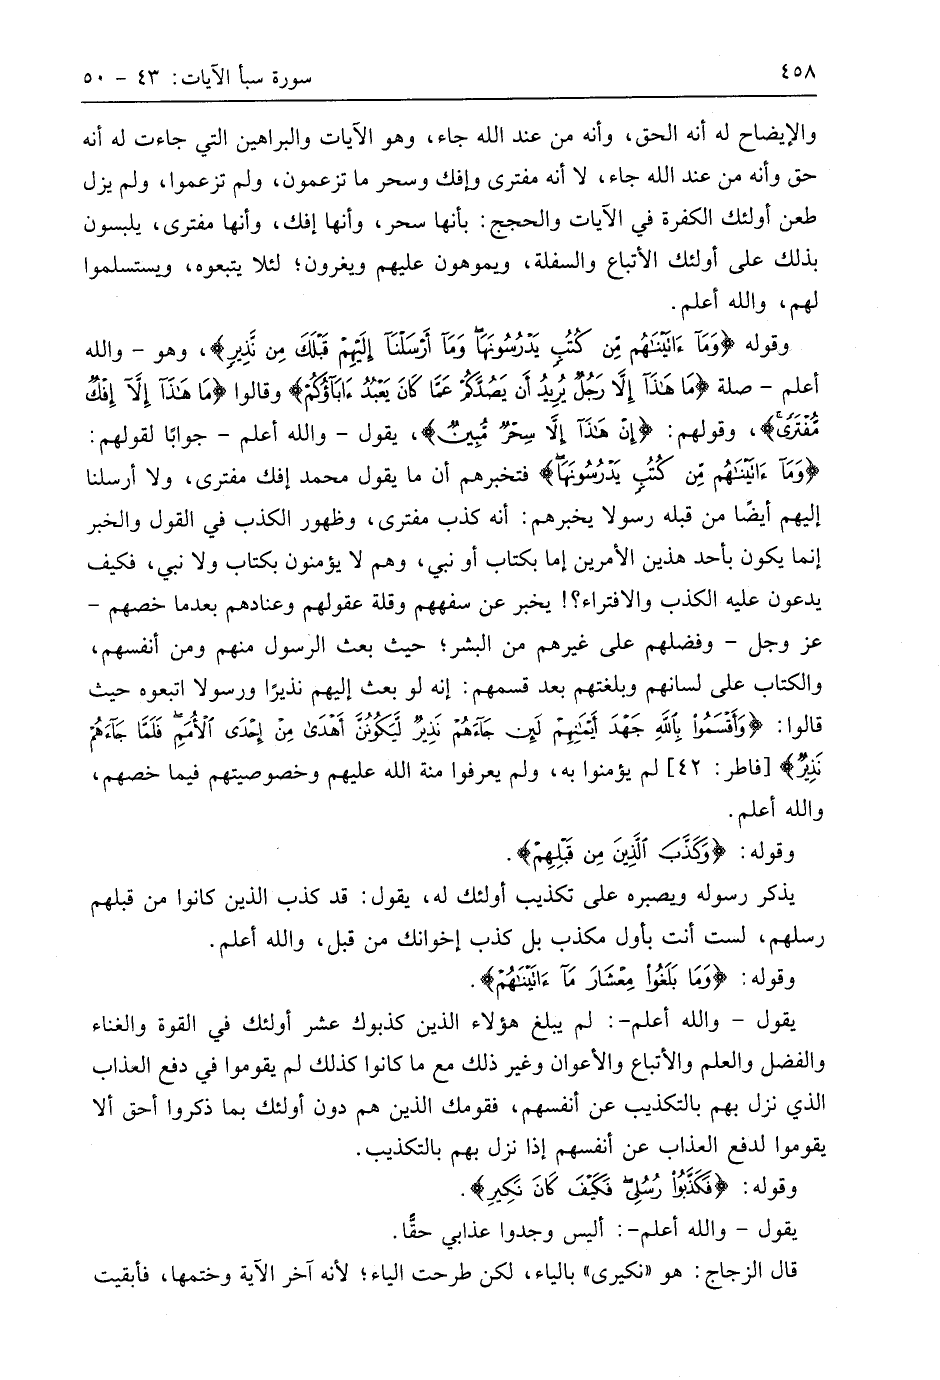 ٤٥٨
سورة سبأ الآيات: ٤٣ - ٥٠
والإيضاح له أنه الحق، وأنه من عند الله جاء، وهو الآيات والبراهين التي جاءت له أنه
حق وأنه من عند الله جاء، لا أنه مفترى وإفك وسحر ما تزعمون، ولم تزعموا، ولم يزل
طعن أولئك الكفرة في الآيات والحجج: بأنها سحر، وأنها إفك، وأنها مفترى، يلبسون
بذلك على أولئك الأتباع والسفلة، ويموهون عليهم ويغرون؛ لئلا يتبعوه، ويستسلموا
لهم، والله أعلم.
وقوله ﴿وَمَآ ءَاتَيْنَٰهُم مِّن كُتُبٍ يَدْرُسُونَهَاۖ وَمَآ أَرْسَلْنَآ إِلَيْهِمْ قَبْلَكَ مِن نَّذِيرٍ﴾، وهو - والله
أعلم - صلة ﴿مَا هَٰذَآ إِلَّا رَجُلٌ يُرِيدُ أَن يَصُدَّكُمْ عَمَّا كَانَ يَعْبُدُ ءَابَآؤُكُمْ﴾ وقالوا ﴿مَا هَٰذَآ إِلَّآ إِفْكٌ
مُّفْتَرًىۚ﴾، وقولهم: ﴿إِنْ هَٰذَآ إِلَّا سِحْرٌ مُّبِينٌ﴾، يقول - والله أعلم - جوابًا لقولهم:
﴿وَمَآ ءَاتَيْنَٰهُم مِّن كُتُبٍ يَدْرُسُونَهَاۖ﴾ فتخبرهم أن ما يقول محمد إفك مفترى، ولا أرسلنا
إليهم أيضًا من قبله رسولا يخبرهم: أنه كذب مفترى، وظهور الكذب في القول والخبر
إنما يكون بأحد هذين الأمرين إما بكتاب أو نبي، وهم لا يؤمنون بكتاب ولا نبي، فكيف
يدعون عليه الكذب والافتراء؟! يخبر عن سفههم وقلة عقولهم وعنادهم بعدما خصهم -
عز وجل - وفضلهم على غيرهم من البشر؛ حيث بعث الرسول منهم ومن أنفسهم،
والكتاب على لسانهم وبلغتهم بعد قسمهم: إنه لو بعث إليهم نذيرًا ورسولا اتبعوه حيث
قالوا: ﴿وَأَقْسَمُوا۟ بِٱللَّهِ جَهْدَ أَيْمَٰنِهِمْ لَئِن جَآءَهُمْ نَذِيرٌ لَّيَكُونُنَّ أَهْدَىٰ مِنْ إِحْدَى ٱلْأُمَمِۖ فَلَمَّا جَآءَهُمْ
نَذِيرٌ﴾ [فاطر: ٤٢] لم يؤمنوا به، ولم يعرفوا منة الله عليهم وخصوصيتهم فيما خصهم،
والله أعلم.
وقوله: ﴿وَكَذَّبَ ٱلَّذِينَ مِن قَبْلِهِمْ﴾.
يذكر رسوله ويصبره على تكذيب أولئك له، يقول: قد كذب الذين كانوا من قبلهم
رسلهم، لست أنت بأول مكذب بل كذب إخوانك من قبل، والله أعلم.
وقوله: ﴿وَمَا بَلَغُوا۟ مِعْشَارَ مَآ ءَاتَيْنَٰهُمْ﴾.
يقول - والله أعلم-: لم يبلغ هؤلاء الذين كذبوك عشر أولئك في القوة والغناء
والفضل والعلم والأتباع والأعوان وغير ذلك مع ما كانوا كذلك لم يقوموا في دفع العذاب
الذي نزل بهم بالتكذيب عن أنفسهم، فقومك الذين هم دون أولئك بما ذكروا أحق ألا
يقوموا لدفع العذاب عن أنفسهم إذا نزل بهم بالتكذيب.
وقوله: ﴿فَكَذَّبُوا۟ رُسُلِىۖ فَكَيْفَ كَانَ نَكِيرِ﴾.
يقول - والله أعلم-: أليس وجدوا عذابي حقًّا.
قال الزجاج: هو «نكيرى» بالياء، لكن طرحت الياء؛ لأنه آخر الآية وختمها، فأبقيت